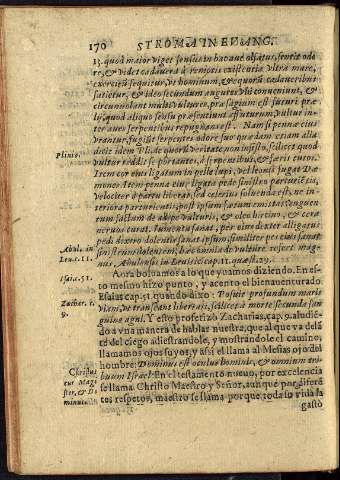 170 STROMA IN EVANG.
13. quod maior viget sensus in hac ave olfatus, sentit odo
re, & videt cadavera à remotis existentia ultra mare,
exercitũ sequitur, ut hominum, & equorũ cadaveribus
satietur, & ideo secundum augures ubi conveniunt, &
circumvolant multi vultures, præsagium est futuri præ
lij, quod aliquo sensu præsentiunt affuturum, vultur in
ter aves serpentibus repugnans est. Nam si penna eius
urantur, fugiūt serpentes odore suo quadam etiam alia
dicit idem Plinio
Plinie.
vultur reddit se portantes, à serpentibus, & fœris tutos.
Item cor eius ligatum in pelle lupi, vel leonis fugat Dæ
mones. Item penna eius ligata pede sinistro parturientis,
velociter à partu liberat, sed celerius solvenda est, ne in
teriora parturientis, post ipsum fœtum emittat, unguen-
tum factum de adipe vulturis, & oleo hircino, & cera
nervos curat. Iumenta sanat, per eius dexter alligatus
pedi dextro dolente sanat ipsum, similiter per eius sanat
sinistrum dolentem, hæc omnia de vulture refert Mag-
nus, Abulensis in Levitici cap. 11. quæst. 29.
Abul. in
Leu. c. 11.
Aora bolvamos a lo que yvamos diziendo. En es-
to mesmo hizo punto, y acento el bienaventurado
Esaias cap. 51. quando dixo: Posuit profundum maris
Isai. c. 51.
viam, ut transirent liberati, scilicet à morte secunda san
guine agni. Y esto profetizò Zacharias, cap. 9. aludiẽ-
Zachar. c.
9.
do a vna manera de hablar nuestra, que al que va delã
te del ciego adiestrandole, y mostrandole el camino,
llamamos ojos suyos, y assi el llama al Mesias ojo del
hombre: Dominus est oculus hominis, & omnium tri
buum Israel. En el testamento nuevo, por excelencia
Christus
cur Magi
ster, & Do
minus.
se llama Christo Maestro y Señor, aunque por diferẽ
tes respetos, maestro se llama porque toda su vida la
gastò